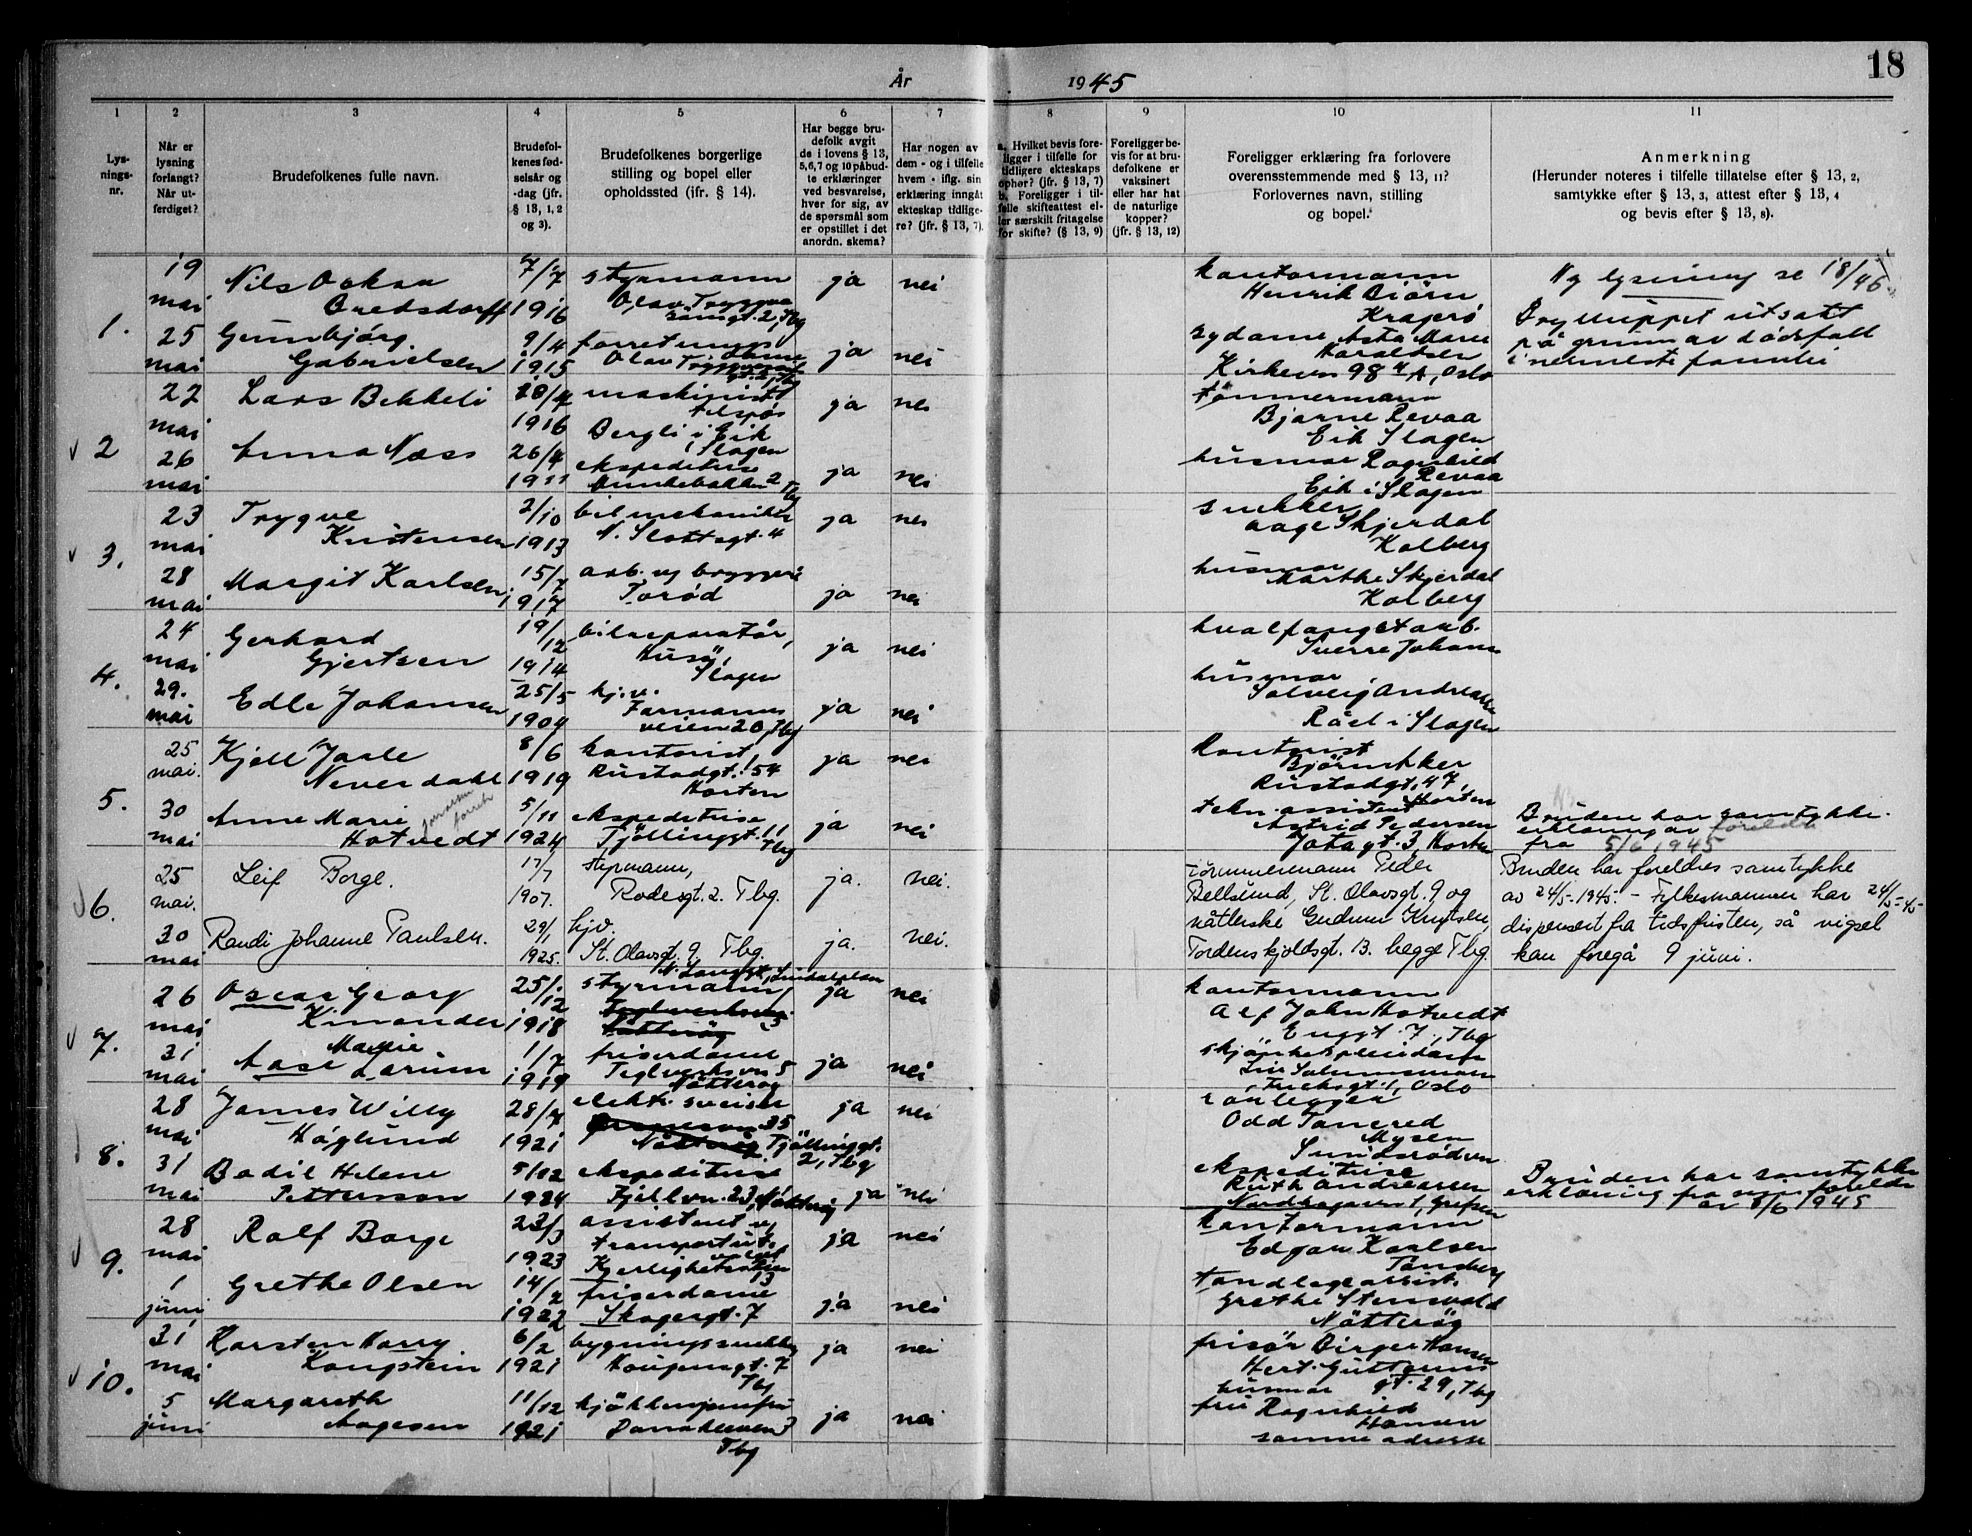 18
År 1945
1 2 3 4 5 6 7 8 9 10 11
Lys-
nings-
nr.
Når er
lysning
forlangt?
Når ut-
ferdiget?
Brudefolkenes fulle navn.
Brudefol-
kenes fød-
selsår og
-dag (jfr.
§ 13, 1, 2
og 3).
Brudefolkenes borgerlige
stilling og bopel eller
opholdssted (ifr. § 14).
Har begge bru-
defolk avgit
de i lovens § 13,
5, 6, 7 og 10 påbud-
te erklæringer
ved besvarelse,
hver for sig, av
de spørsmål som
er opstillet i det
anordn. skema?
Har nogen av
dem - og i tilfelle
hvem - iflg. sin
erklæring inngått
ekteskap tidlige-
re? (jfr. § 13, 7).
a. Hvilket bevis fore-
ligger i tilfelle for
tidligere ekteskaps
ophør? (jfr. § 13, 7)
b. Foreligger i til-
felle skifteattest el-
ler særskilt fritagelse
for skifte? (§ 13, 9)
Foreligger be-
vis for at bru-
defolkene er
vaksinert
eller har hat
de naturlige
kopper?
(jfr. § 13, 12)
Foreligger erklæring fra forlovere
overensstemmende med § 13, 11?
Forlovernes navn, stilling
og bopel.
Anmerkning
(Herunder noteres i tilfelle tillatelse efter § 13, 2,
samtykke efter § 13, 3, attest efter § 13, 4
og bevis efter § 13, 8).
1.
19
mai
Nils Oskar
Bredsdorff
7/7
1916
styrmann
Olav Tryggva
sönsgt. 2, Tbg
ja nei
kontormann
Henrik Biörn
Kragerö
Ny lysning se 18/46
25
mai
Gunnbjørg
Gabrielsen
9/4
1915
forretnings
dame
Olav
ja nei
sydame Asta Marie
Haraldsen
Kirkevn 98 A, Oslo
Brylluppet utsatt
på grunn av dödsfall
i nermeste familie
2
22
mai
Lars Bekkeli
28/7
1916
maskinist
Bergli i Eik
i Slagen
ja nei
tömmermann
Bjarne Revaa
Eik Slagen
26
mai
Anna Næss
26/4
1911
ekspeditrise
Munkebakken 2
Tbg
ja nei
husmor Ragnhild
Revaa
Eik i Slagen
3.
23
mai
Trygve
Kristensen
2/10
1913
bilmekaniker
N. Slottsgt. 4
ja nei
snekker
Aage Skjerdal
Kolberg
28
mai
Margit Karlsen
15/7
1917
arb. v/ bryggeri
Torød
ja nei
husmor
Marthe Skjerdal
Kolberg
4.
24
mai
Gerhard
Gjertsen
19/12
1914
bilreparatör,
Husö,
Slagen
ja nei
hvalfangstarb.
Sverre Johans
29.
mai
Edle Johansen
25/5
1904
hj.v.
Farmanns
veien 20, Tbg
ja nei
husmor
Solveig Andreassen
Råel i Slagen
5.
25
mai.
Kjell Jarle
Neverdahl
8/6
1919
kontorist
Rustadgt. 54
Horten
ja nei
Kontorist
Björn Aker
Rustadgt. 47,
Horten
30
mai
Anne Marie
Hotvedt
5/11
1924
ekspeditrise
Tjöllinggt. 11
Tbg
ja nei
tekn. assistent
Astrid Pedersen
Jotagt. 3, Horten
Bruden har samtykke-
erklæring av foreldre
fra 5/6 1945
6.
25
mai.
Leif Borge.
17/7
1907.
styrmann,
Rodesgt. 2. Tbg.
ja. nei.
Tömmermann Peder
Bellsund, St. Olavsgt. 9 og
Bruden har foreldres samtykke
av 24/5-1945. - Fylkesmannen har 24/5-45
30
mai
Randi Johanne Paulsen.
29/1
1925.
hjv.
St. Olavsgt. 9. Tbg.
ja. nei.
nåtlerske Gudrun Knutsen,
Tordenskjoldsgt. 13. begge Tbg.
dispensert fra tidsfristen, så vigsel
kan foregå 9 juni.
7.
26
mai
Oscar Georg
Kinander
25/12
1918
styrmann
ja nei
kontormann
Alf John Hotvedt
Enggt. 7, Tbg
31
mai
Marie
Aase Lorum
1/7
1919
friserdame
Teglverksvn 5
Nötteröy
ja nei
skjönhetspleiedame
Oslo
8.
28
mai
James Willy
Höglund
28/7
1921
elektr. sveiser
Tjöllinggt.
2, Tbg
ja nei
Odd Tancred
Mysen
31
mai
Bodil Helene
Petterson
5/12
1924
ekspeditrise
Fjellvn. 23, Nötteröy
ja nei
ekspeditrise
Ruth Andreassen
Bruden har samtykke
erklæring fra sine foreldre
av 8/6 1945
9.
28
mai
Rolf Borge
23/3
1923
assistent v/
ja nei
Kontormann
Edgar Karlsen
Tönsberg
1
juni
Grethe Olsen
14/2
1922
friserdame
Skagergt. 7
ja nei
tandlegeassist.
Grethe Stensvold
Nötteröy
10.
31
mai
Karsten Harry
Kongstein
6/2
1921
bygningssnekker
7
Tbg
ja nei
frisör Birger Hansen
Hert. Guttorms
gt. 29, Tbg
5
juni
Margareth
Aagesen
11/12
1921
kjökkenjomfru
3
Tbg
ja nei
husmor
fru Ragnhild
Hansen
samme adresse